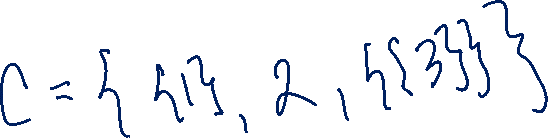 C = { {1}, 2, {{3}}}